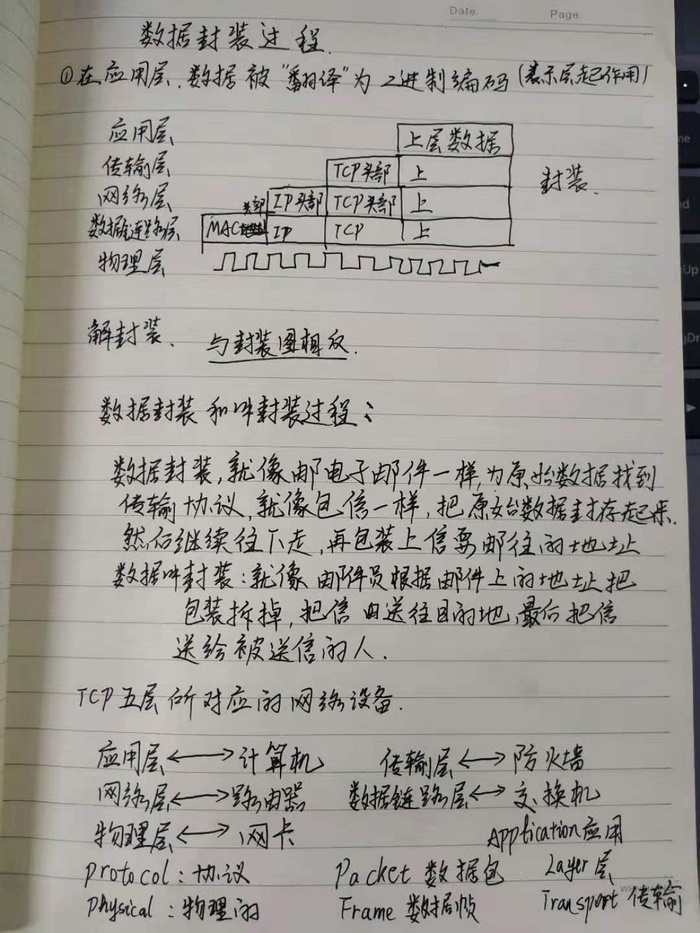 Date. Page.
数据封装过程.
①在应用层.数据被"翻译"为2进制编码(表示层起作用)
应用层 上层数据
传输层 TCP头部 上 封装.
网络层 头部 IP头部 TCP头部 上
数据链路层 MAC IP TCP 上
物理层
解封装. 与封装图相反.
数据封装和叶封装过程:
数据封装,就像邮电子邮件一样,为原始数据找到
传输协议,就像包信一样,把原始数据封存起来.
然后继续往下走,再包装上信要邮往的地址
数据叶封装:就像邮件员根据邮件上的地址把
包装拆掉,把信由送往目的地,最后把信
送给被送信的人.
TCP五层所对应的网络设备.
应用层⟷计算机 传输层⟷防火墙
网络层⟷路由器 数据链路层⟷交换机
物理层⟷网卡 Application应用
protocol:协议 Packet 数据包 Layer层
physical:物理的 Frame 数据帧 Transport传输